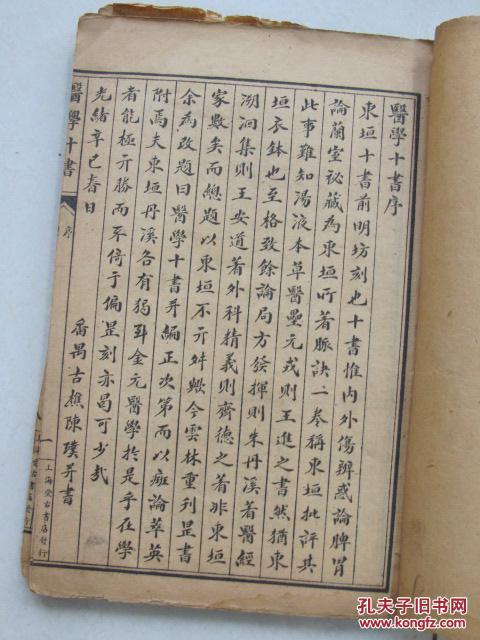 醫學十書序
東垣十書前明坊刻也十書惟內外傷辨惑論脾胃
論蘭室祕藏為東垣所著脈訣一卷稱東垣批評其
此事難知湯液本草醫壘元戎則王進之書然猶東
垣衣鉢也至格致餘論局方發揮則朱丹溪著醫經
溯洄集則王安道著外科精義則齊德之著非東垣
家數矣而總題以東垣不亦舛歟今雲林重刊是書
余為改題曰醫學十書并編正次第而以痘論萃英
附焉夫東垣丹溪各有獨到金元醫學於是乎在學
者能極亓勝而不倚于偏是刻亦曷可少哉
光緒辛巳春日
番禺古樵陳璞并書
醫學十書
序
一
上海受古書店發行
孔夫子旧书网
www.kongfz.com